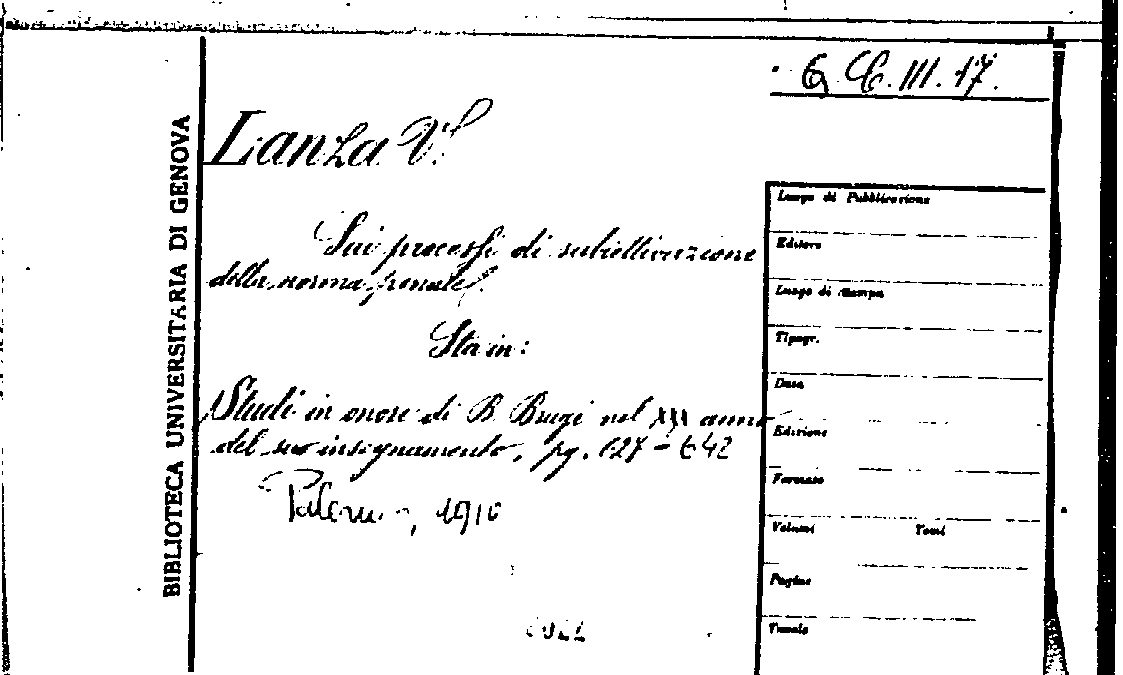 6 C. III. 17.
BIBLIOTECA UNIVERSITARIA DI GENOVA
Lanza V.
Sui processi di subiettivazione
della norma penale.
Sta in:
Studi in onore di B. Brugi nel XXX anno
del suo insegnamento, pg. 627 - 642
Palermo, 1910
Luogo di Pubblicazione
Editore
Luogo di stampa
Tipogr.
Data
Edizione
Formato
Volumi Tomi
Pagine
Tavole